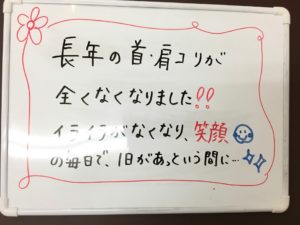 長年の首・肩コリが
全くなくなりました!!
イライラがなくなり、笑顔
の毎日で、1日があっという間に…